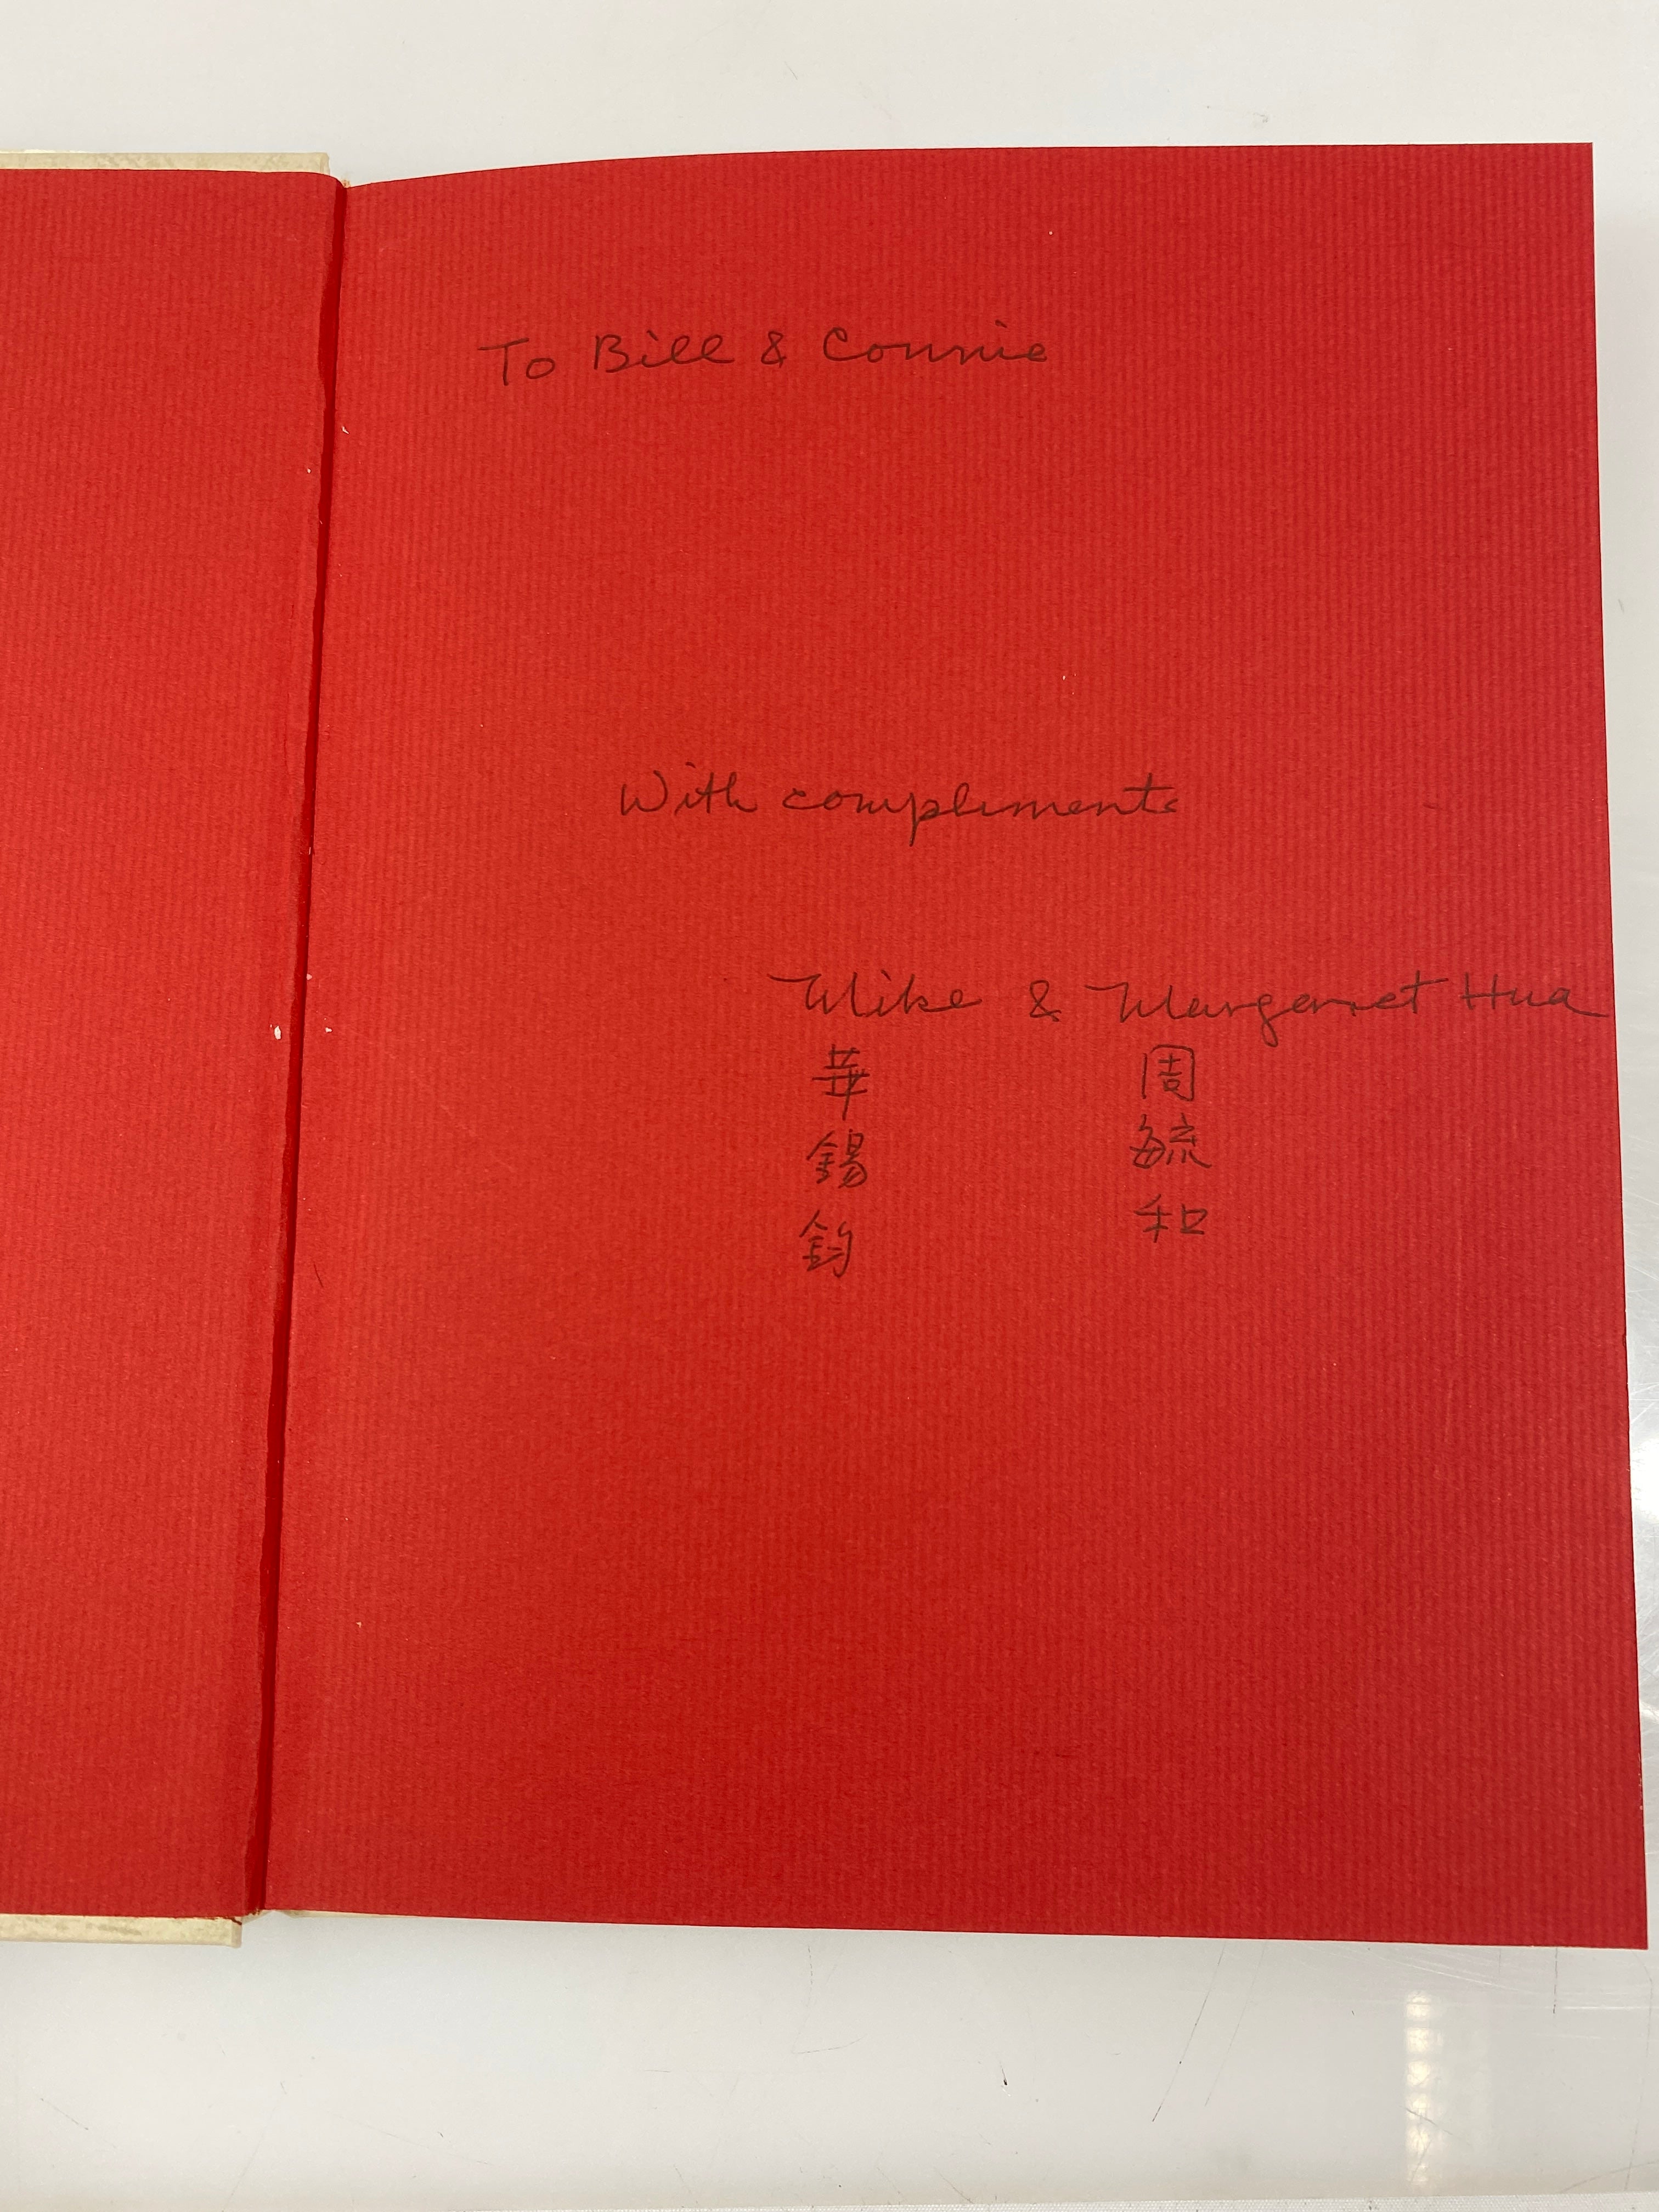 To Bill & Connie
With compliments
Mike & Margaret Hua
華錫鈞
周毓和